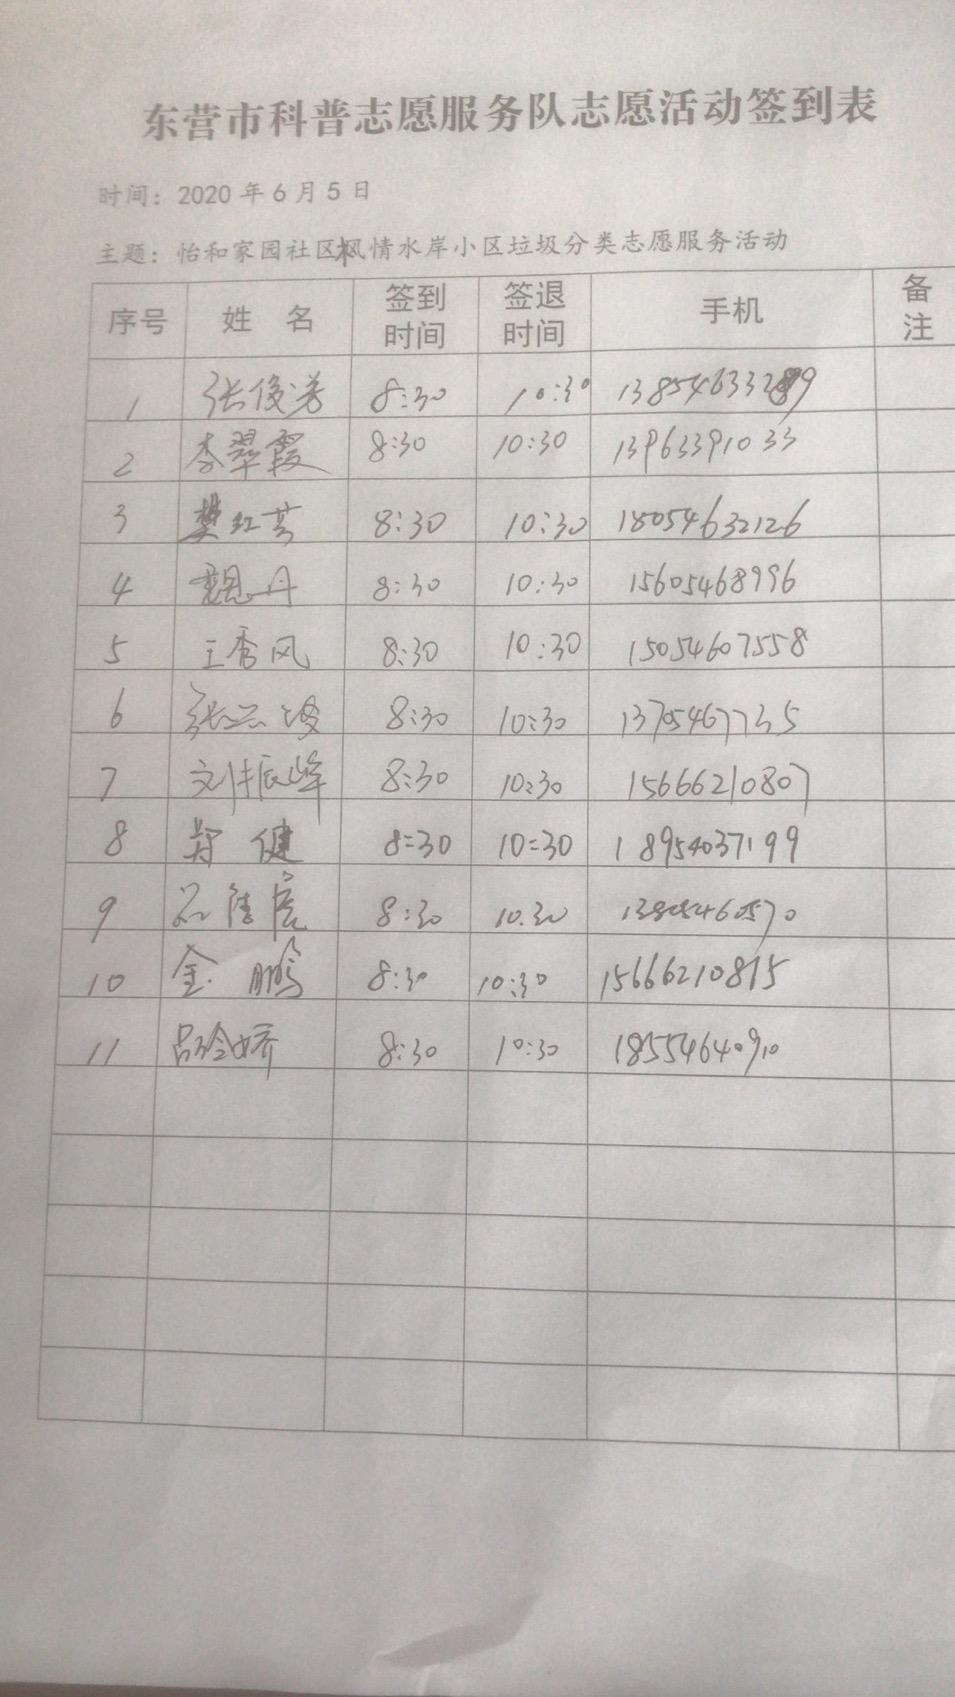 东营市科普志愿服务队志愿活动签到表
时间：2020 年 6 月 5 日
主题：怡和家园社区枫情水岸小区垃圾分类志愿服务活动
序号 姓 名 签到时间 签退时间 手机 备注
1 张俊芳 8:30 10:30
2 李翠霞 8:30 10:30 13963391033
3 樊红芸 8:30 10:30 18054632126
4 魏丹 8:30 10:30 15605468996
5 王秀风 8:30 10:30 15054607558
6 8:30 10:30 13705467735
7 刘振峰 8:30 10:30 15666210807
8 郑健 8:30 10:30 18954037199
9 8:30 10.30 13805460570
10 金鹏 8:30 10:30 15666210815
11 吕玲娇 8:30 10:30 18554640910